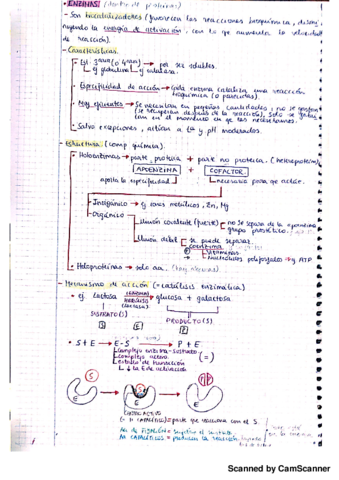 • ENZIMAS (dentro de proteínas)
- Son biocatalizadores (favorecen las reacciones bioquímica, dismi-
nuyendo la energía de activación, con lo que aumentan la velocidad
de reacción).
- Características.
• Est. 3aria (o 4aria) → por ser solubles.
ej globulina ej catalasa.
• Especificidad de acción → cada enzima cataliza una reacción
bioquímica (o parecidas).
• Muy eficaces → Se necesitan en pequeñas cantidades, no se gastan
(se recuperan después de la reacción), solo se
en el momento en que las necesitamos.
• Salvo excepciones, actúan a Tª y pH moderados.
- Estructura (comp química).
• Holoenzimas → parte proteica + parte no proteica (heteroproteína)
APOENZIMA + COFACTOR
aporta la especificidad necesario para que actúe.
Inorgánico → ej iones metálicos, Zn, Mg
Orgánico
Unión covalente (fuerte) → no se separa de la apoenzima
grupo prostético
Unión débil → se puede separar.
coenzima
→ Vitaminas
→ Nucleótidos polifosfato → ej ATP
• Holoproteínas → solo aa.
- Mecanismo de acción (= catálisis enzimática)
• ej lactosa → glucosa + galactosa
(lactasa)
SUSTRATO(S) PRODUCTO(S)
S E P
• S + E → E-S → P + E
Complejo enzima-sustrato
Complejo activo
estado de transición
(=)
↓ la E de activación
S
CENTRO ACTIVO
= parte que reacciona con el S.
Aa de FIJACIÓN = sujetan el sustrato
Aa CATALÍTICOS = producen la reacción
Scanned by CamScanner